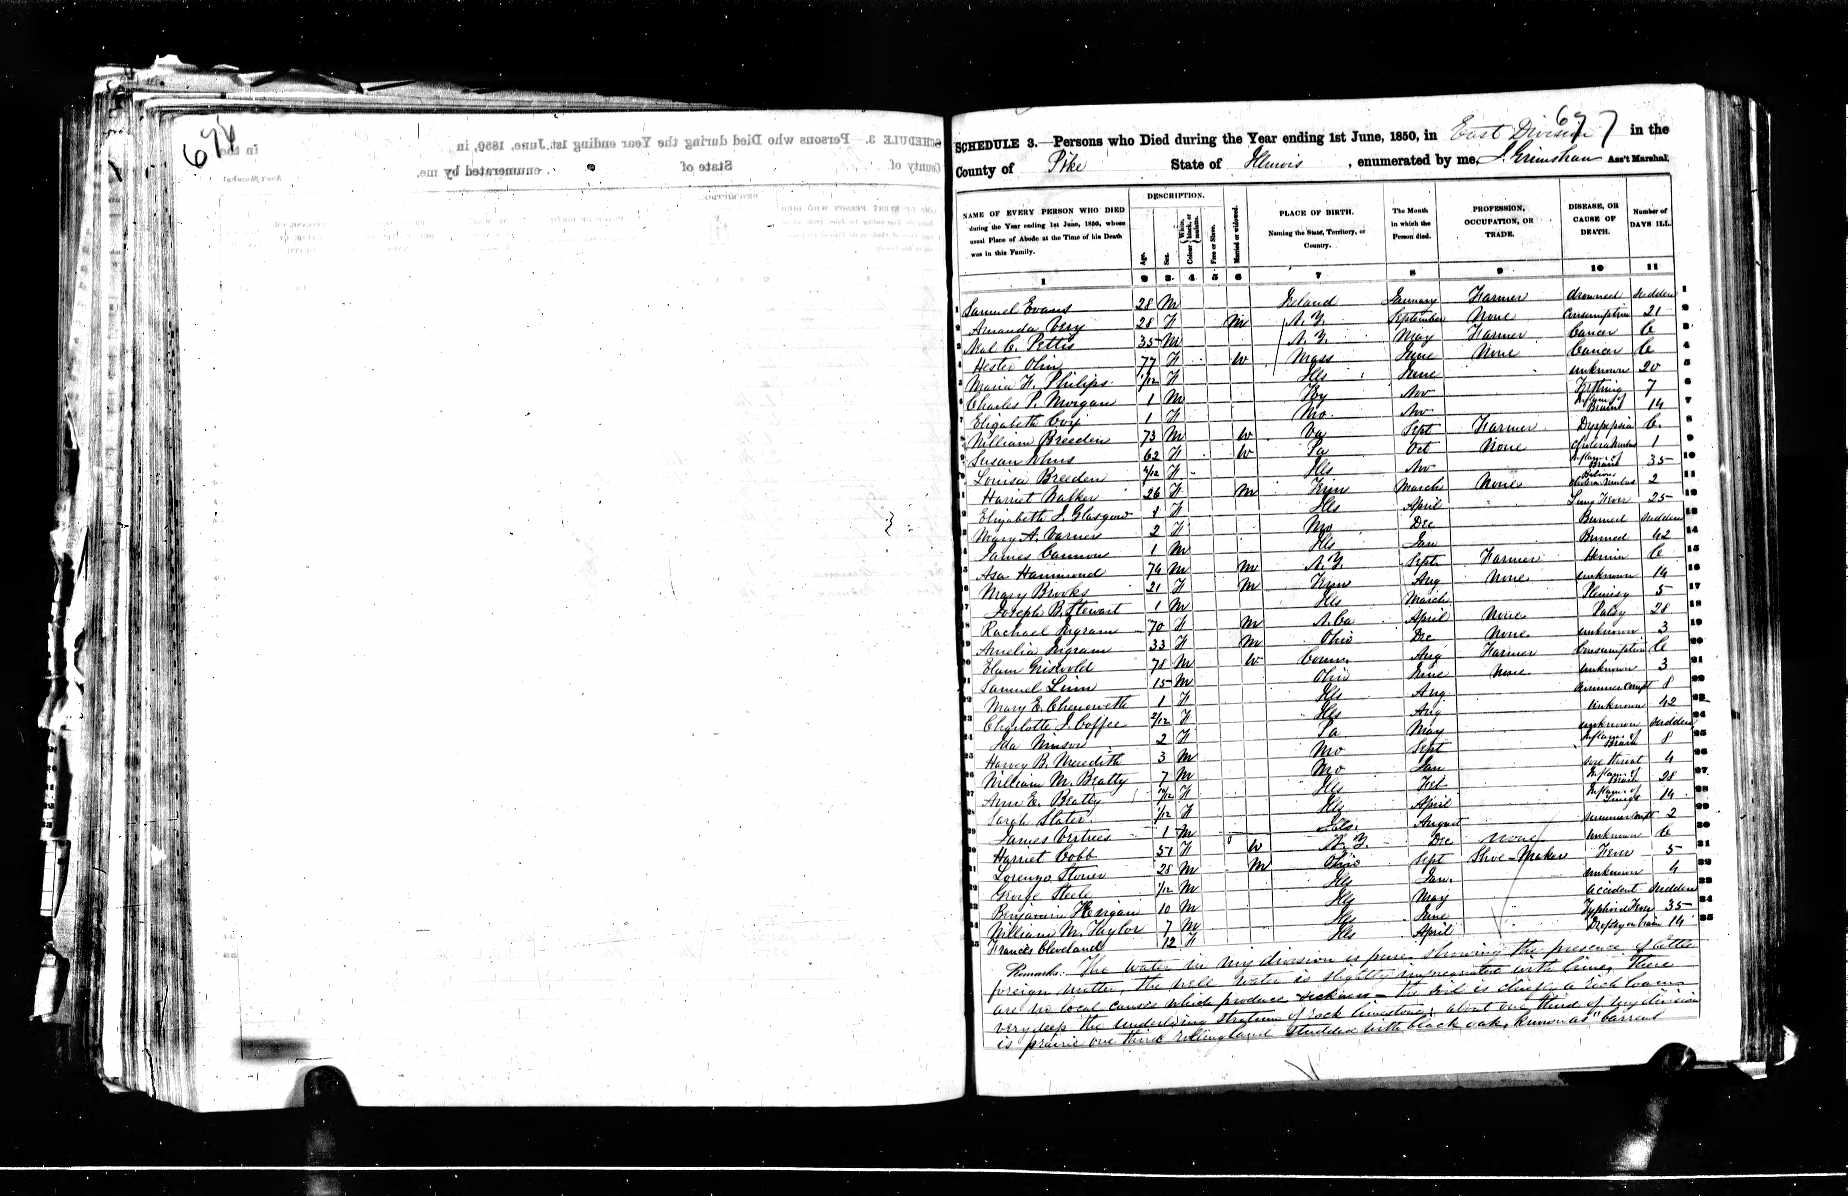 674
677
SCHEDULE 3.—Persons who Died during the Year ending 1st June, 1850, in East Division in the
County of Pike State of Illinois, enumerated by me, J. Grimshaw Ass't Marshal.
NAME OF EVERY PERSON WHO DIED during the Year ending 1st June, 1850, whose usual Place of Abode at the Time of his Death was in this Family.
DESCRIPTION.
Age. Sex. White, black, or mulatto. Free or Slave. Married or widowed.
PLACE OF BIRTH. Naming the State, Territory, or Country.
The Month in which the Person died.
PROFESSION, OCCUPATION, OR TRADE.
DISEASE, OR CAUSE OF DEATH.
Number of DAYS ILL.
1 2 3 4 5 6 7 8 9 10 11
1 Samuel Evans 28 M Ireland January Farmer drowned sudden 1
2 Amanda 28 F M N.Y. September None Consumption 21 2
3 C. Pettis 35 M N.Y. May Farmer Cancer C 3
4 Hester Olin 77 F W Mass June None Cancer C 4
5 Maria F. Philips /12 F Ills June unknown 20 5
6 Charles P. Morgan 1 M Ky Nov Teething 7 6
7 Elizabeth 1 F Mo. Nov Inflam. of Brain 14 7
8 William Breeden 73 M W Va Sept Farmer Dyspepsia C. 8
9 Susan 62 F W Pa Oct None Cholera Morbus 1 9
10 Louisa Breeden /12 F Ills Nov Inflam. of Brain 35 10
11 Harriet Walker 26 F M Tenn March None Cholera Morbus 2 11
12 Elizabeth J. Glasgow F Ills April Lung Fever 25 12
13 Mary A. Varner 2 F Mo Dec Burned sudden 13
14 James Cannon 1 M Ills Jan Burned 42 14
15 Asa Hammond M M N.Y. Sept Farmer Hernia C 15
16 Mary Brooks 21 F M Tenn Aug None unknown 14 16
17 Joseph B. Stewart 1 M Ills March Pleurisy 5 17
18 Rachael Ingram 70 F M N.Ca April None Palsy 28 18
19 Amelia Ingram 33 F M Ohio Dec None unknown 3 19
20 Elam Griswold 78 M W Conn. Aug Farmer Consumption C 20
21 Samuel Linn 15 M Ohio June None unknown 3 21
22 Mary E. Chenoweth 1 F Ills Aug summer compt 8 22
23 Charlotte J. Coffee 2/12 F Ills Aug unknown 42 23
24 Ida 2 F Pa May unknown sudden 24
25 Harvey B. Meredith 3 M Mo Sept Inflam. of Brain 8 25
26 William M. Beatty 7 M Mo Jan sore throat 4 26
27 Ann E. Beatty /12 F Ills Feb Inflam. of Brain 28 27
28 Sarah Slater /12 F Ills April Inflam. of Lungs 14 28
29 James Vertrees 1 M Ills. August summer compt 2 29
30 Harriet Cobb 51 F W N.Y. Dec None unknown C 30
31 Lorenzo Stoner 28 M M Ohio Sept Shoe-Maker Fever 5 31
32 George Steele /12 M Ills Jan. unknown 4 32
33 Benjamin 10 M Ills May accident sudden 33
34 William M. Taylor 7 M Ills June Typhoid Fever 35 34
35 Frances Cleveland 12 F Ills April Dropsy on brain 14 35
Remarks: The water in my division is pure, showing the presence of little
foreign matter, the well water is slightly impregnated with lime, There
are no local causes which produce sickness - the soil is chiefly a rich loam
very deep the underlying stratum of rock limestone; about one third of my division
is prairie one third rolling land studded with black oak, known as "barrens